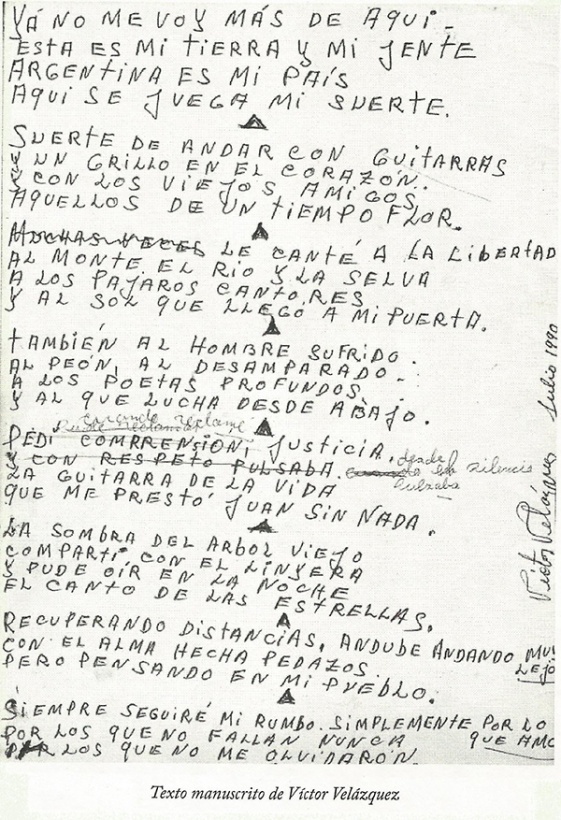 YÁ NO ME VOY MÁS DE AQUI -
ESTA ES MI TIERRA Y MI JENTE
ARGENTINA ES MI PAÍS
AQUI SE JUEGA MI SUERTE.
SUERTE DE ANDAR CON GUITARRAS
Y UN GRILLO EN EL CORAZÓN.
Y CON LOS VIEJOS AMIGOS,
AQUELLOS DE UN TIEMPO FLOR.
MUCHAS VECES LE CANTÉ A LA LIBERTAD
AL MONTE EL RIO Y LA SELVA
A LOS PAJAROS CANTORES
Y AL SOL QUE LLEGÓ A MI PUERTA.
TAMBIÉN AL HOMBRE SUFRIDO.
AL PEÓN, AL DESAMPARADO -
A LOS POETAS PROFUNDOS,
Y AL QUE LUCHA DESDE ABAJO.
reclamé
PEDI COMPRENSION, JUSTICIA,
Y CON RESPETO PULSABA. desde el silencio
pulsaba
LA GUITARRA DE LA VIDA
QUE ME PRESTÓ JUAN SIN NADA.
LA SOMBRA DEL ARBOL VIEJO
COMPARTÍ CON EL LINYERA
Y PUDE OÍR EN LA NOCHE
EL CANTO DE LAS ESTRELLAS.
RECUPERANDO DISTANCIAS, ANDUBE ANDANDO MUY
LEJO
CON EL ALMA HECHA PEDAZOS
PERO PENSANDO EN MI PUEBLO.
SIEMPRE SEGUIRÉ MI RUMBO. SIMPLEMENTE POR LO
QUE AMO
POR LOS QUE NO FALLAN NUNCA
POR LOS QUE NO ME OLVIDARON.
Victor Velazquez Julio 1990
Texto manuscrito de Víctor Velázquez